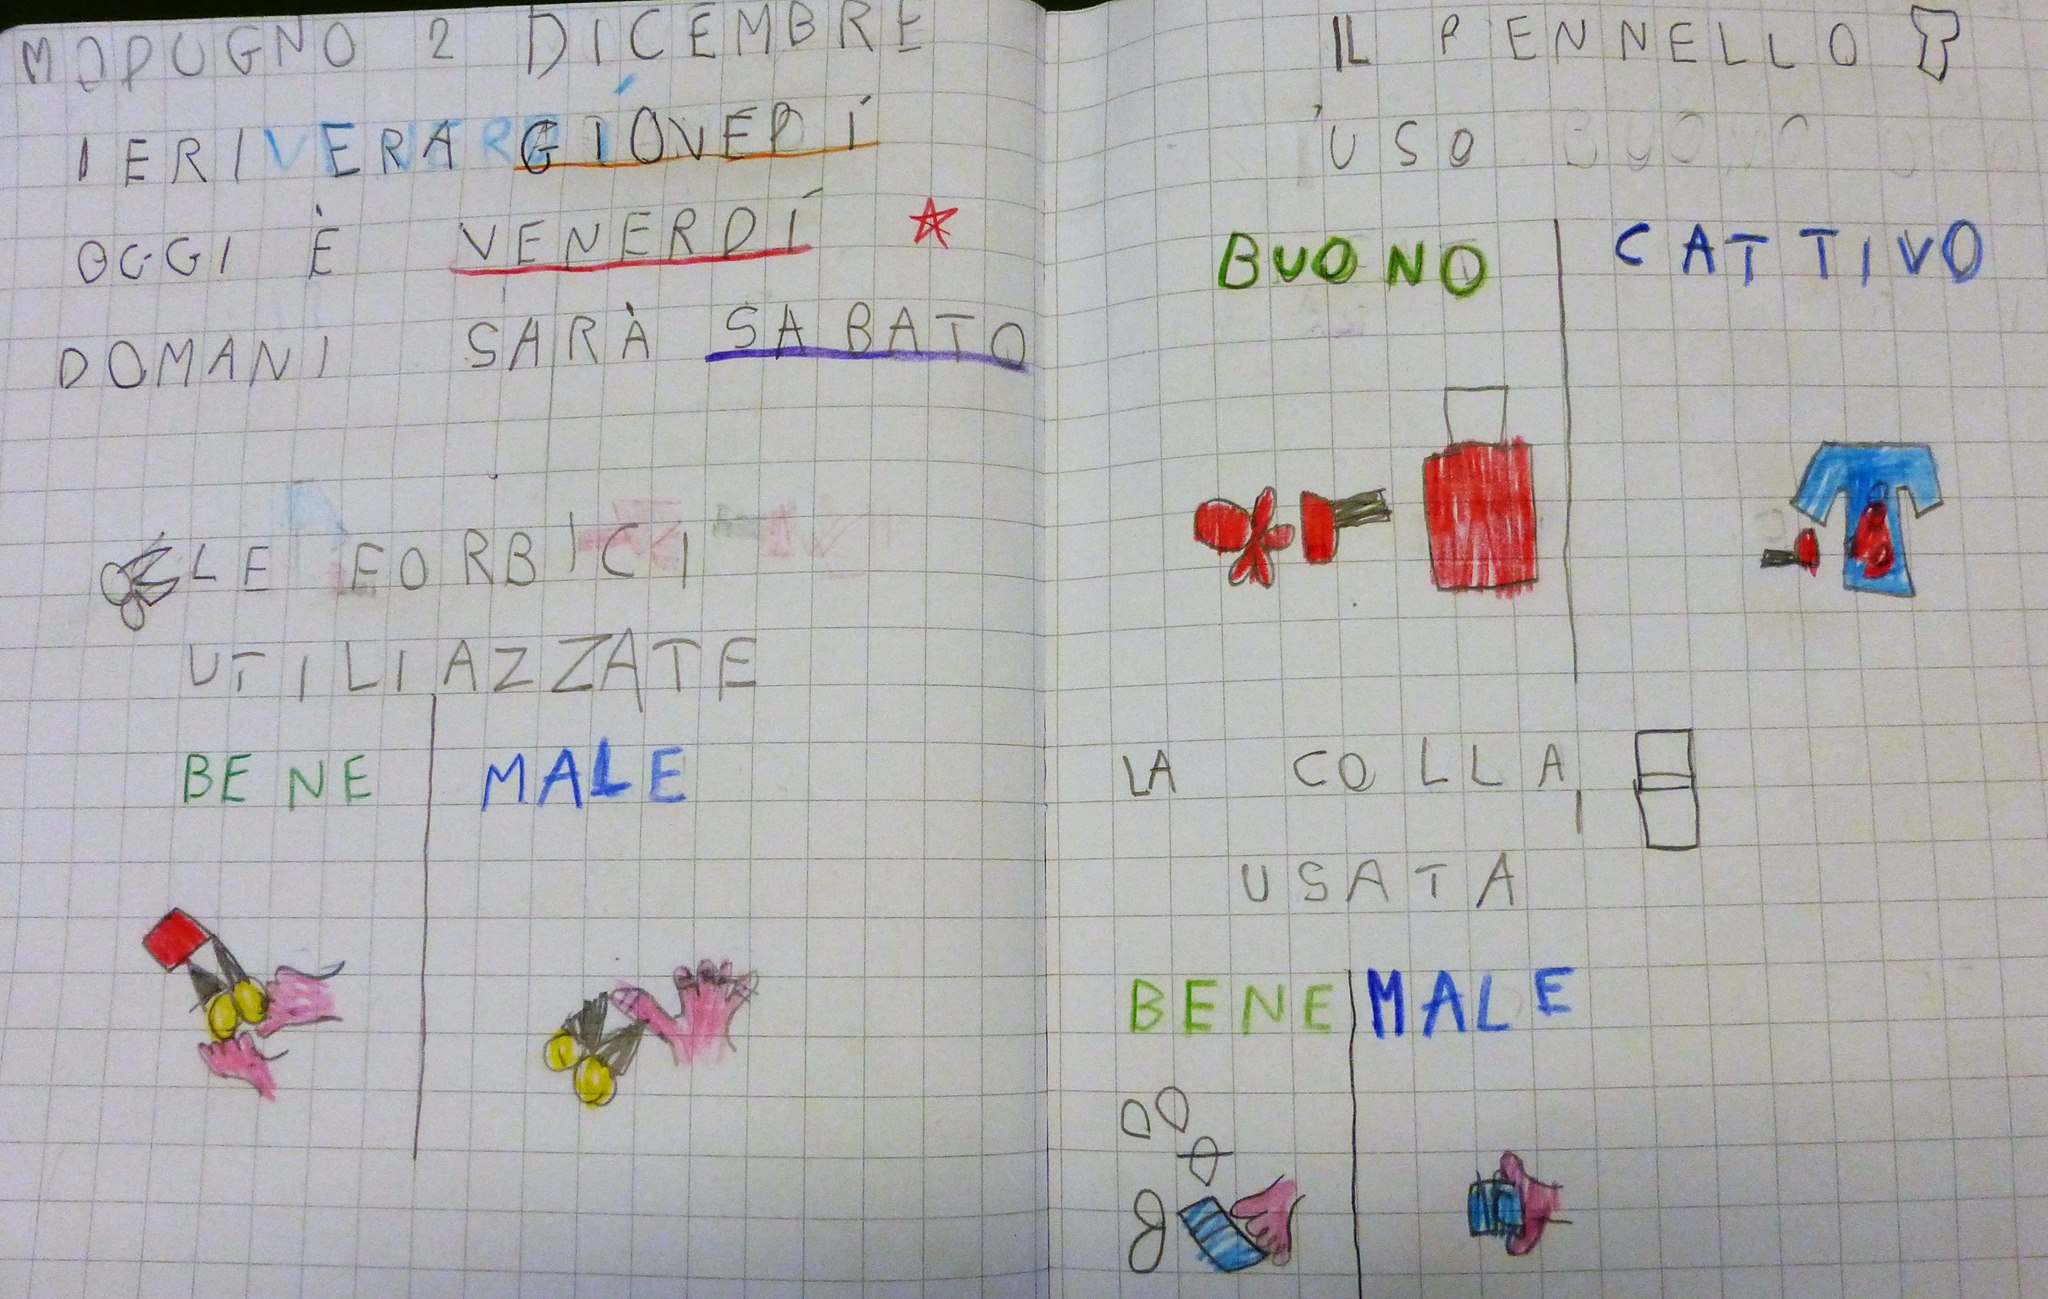 MODUGNO 2 DICEMBRE
IERI ERA GIOVEDÌ
OGGI È VENERDÌ
DOMANI SARÀ SABATO
LE FORBICI
UTILIAZZATE
BENE MALE
IL PENNELLO
USO
BUONO CATTIVO
LA COLLA
USATA
BENE MALE